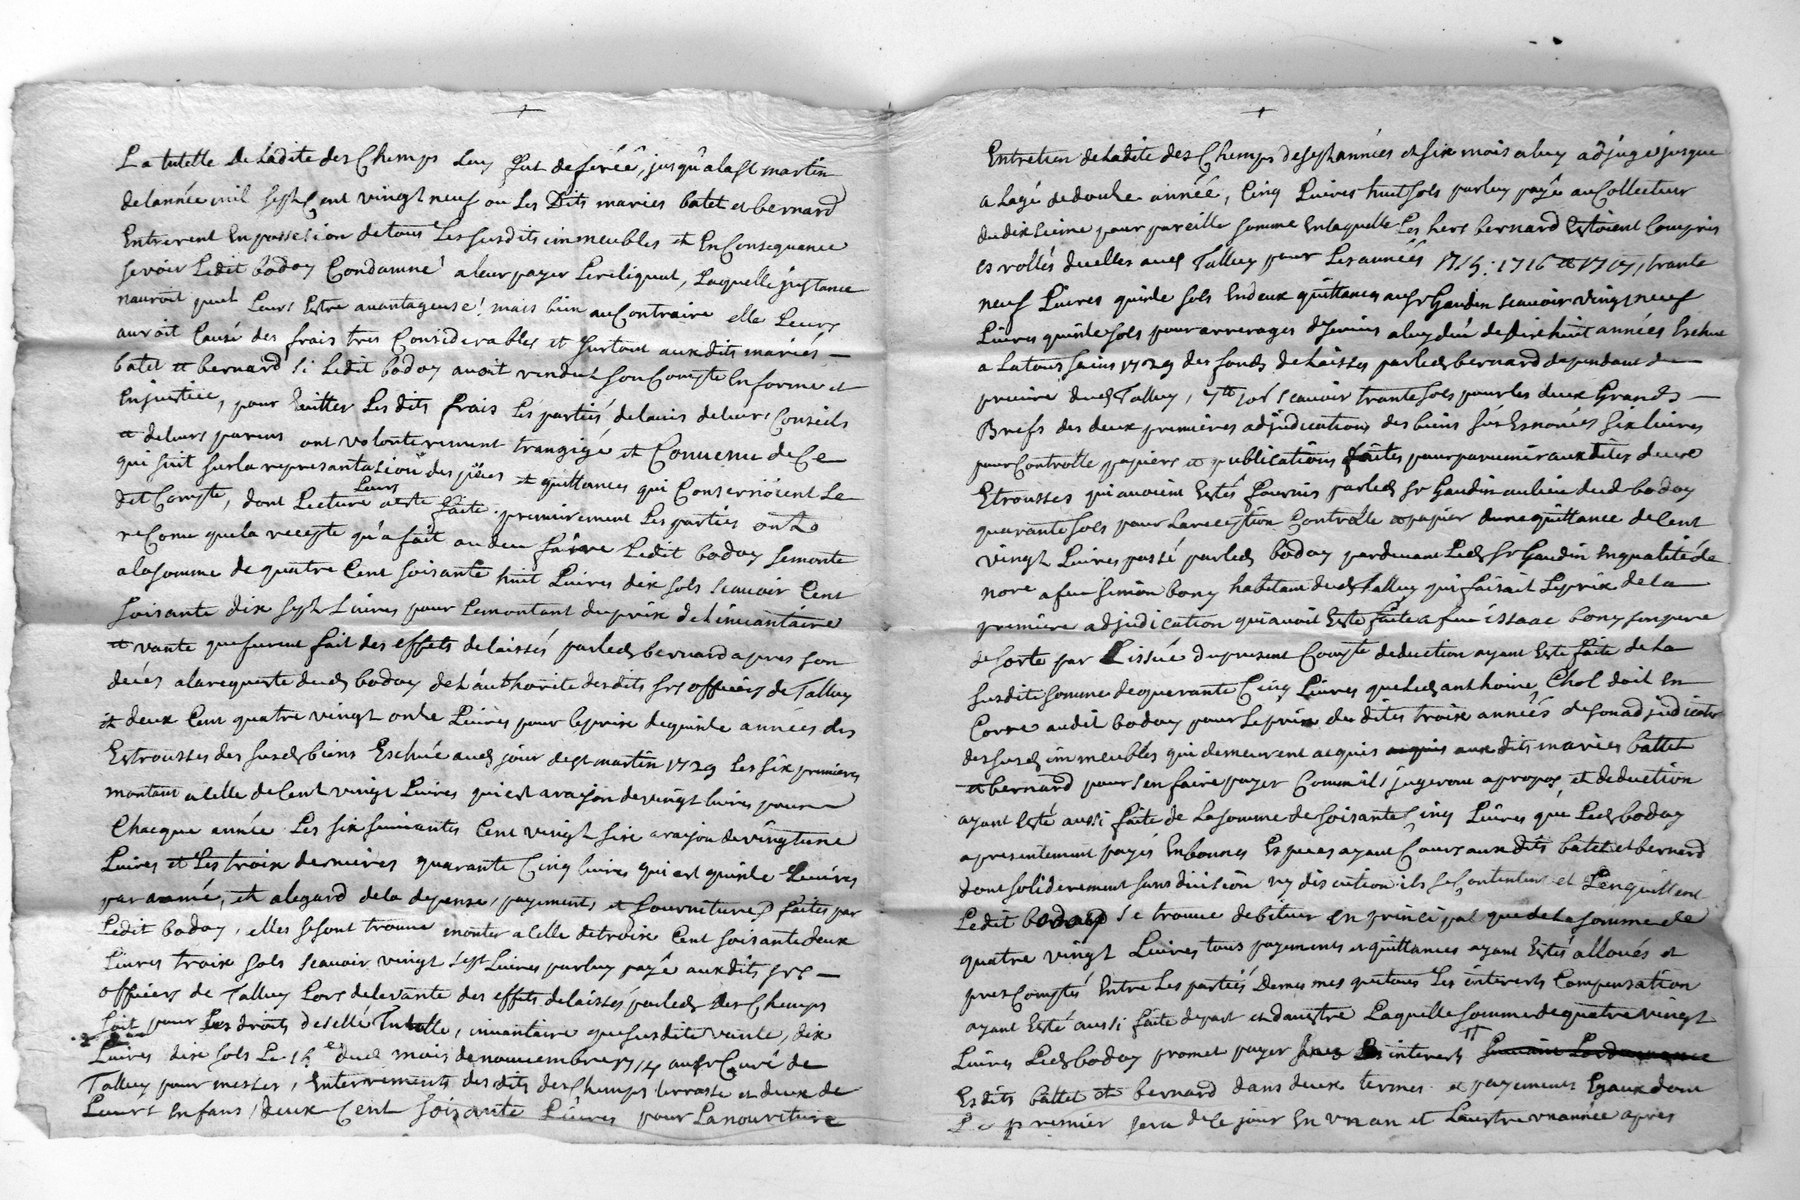 La tutelle de Ladite des Champs Luy fut deferéé, jusqu'a la st martin
de lannée mil sept Cent vingt neuf ou Les Dits mariés batet et bernard
Entrerent En possesion de tous Les susdits immeubles et En Consequance
Ledit boday Condamné a leur payer Le reliquat, Laquelle instance
nauroit peut Leurs Estre avantageuse! mais bien au Contraire elle Leurs
auroit Causé des frais tres Considerables et surtout auxdits mariés
batet et bernard si Ledit boday avoit rendut son Compte En forme et
En justice, pour Les dits frais Les partiés de lavis de leurs Conseils
et de leurs parens ont volonterement trangigé et Convenu de Ce
qui suit sur la representation des pieces et quittances qui Consernoient Le
dit Compte, dont Lecture Leurs a este faite. premierement Les parties ont
reConu que la recepte qu'a fait ou deu faire Ledit boday se monte
a la somme de quatre Cent soisante huit Livres dix sols scavoir Cent
soisante dix sept Livres pour Le montant du prix de Linvantaire
et vante que furent fait des effets delaissés par led bernard apres son
décés a la requeste dud boday de L'authorité desdits srs officiers de Talluy
et deux Cent quatre vingt onze Livres pour le prix de quinze années des
Estrousses des susd biens Eschué aud jour de st martin 1729 Les six premieres
montant a Celle de Cent vingt Livres qui est a raison de vingt livres pour
Chacque année Les six suivantes Cent vingt six a raison de vingt une
Livres et Les trois dernieres quarante Cinq livres qui est quinze Livres
par année, et a legard de la depense, payements et fournitures faites par
Ledit boday, elles se sont trouvé monter a Celle de trois Cent soisante deux
Livres trois sols scavoir vingt sept Livres par luy payé auxdits srs
officiers de Talluy Lors de la vante des effets delaissés par led des Champs
soit pour Les droits de sellé Tutelle, invantaire que susdite vante, dix
Livres dix sols Le 15e dud mois de novembre 1714 au sr Curé de
Talluy pour messes, Enterrements des dits des Champs et deux de
Leurs Enfans, deux Cent soisante Livres pour La nouriture
Entretien de Ladite des Champs de sept années et six mois a luy adjugé jusque
a Lagé de douze année, Cinq Livres huit sols par luy payé au Collecteur
du dixsieme pour pareille somme En laquelle Les hers bernard Estoient Compris
és rollés d'icelles aud Talluy pour Les années 1715: 1716 et 1717, trante
neuf Livres quinze sols En deux quittances au sr Gaudin scavoir vingt neuf
Livres quinze sols pour arrerages d'servis a luy deu de dix huit années Eschue
a La tous saints 1729 des fonds delaisses par led bernard dependant du
prieuré dud Talluy, scavoir trante sols pour les deux Grands
Brefs des deux premieres adjudications des biens sus Enoncés six livres
pour Controlle papiers et publications faites pour parvenir aux dites deux
Etrousses qui avoient Estés fournis par led sr Gaudin au lieu dud boday
quarante sols pour La reception Controlle et papier d'une quittance de Cent
vingt Livres passé par led boday par devant Led sr Gaudin En qualité de
nore a feu simon bony habitant dud Talluy qui faisait Le prix de la
premiere adjudication qui avoit Esté faite a feu issaac bony son pere
de sorte par Lissue du present Compte deduction ayant Esté faite de La
susdite somme de quarante Cinq Livres que Led anthoine Chol doit En
Corre audit boday pour Le prix des dites trois années de son adjudicaton
des susd immeubles qui demeurent acquis aux dits mariés battet
et bernard pour s'en faire payer Comme ils jugeront a propos, et deduction
ayant Esté aussi faite de La somme de soisante Cinq Livres que Led boday
a presentement payés En bonnes Especes ayant Cours aux dits batet et bernard
dont soliderement sans division ny discution ils se Contentent et Lenquittent
Ledit boday se trouve debiteur En principal que de la somme de
quatre vingt Livres tous payements et quittances ayant Estés alloués et
preComptés Entre Les partiés De mes me que tous Les interets Compensation
ayant Esté aussi faite de part et dauttre Laquelle somme de quatre vingt
Livres Led boday promet payer sans interets
Esdits battet et bernard dans deux termes et payements Egaux dont
Le premier sera de Ce jour En un an et Lauttre une année apres